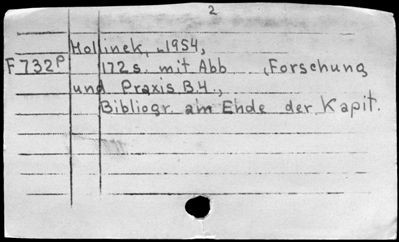 2
Hollinek, 1954,
F732P 172 s. mit Abb (Forschung
und Praxis B.4.,
Bibliogr. am Ende der Kapit.